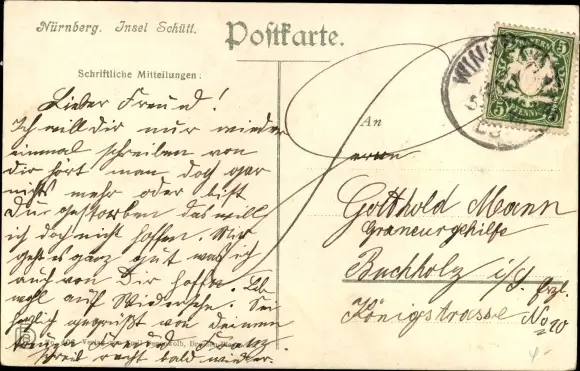 Nürnberg. Insel Schütt.
Postkarte.
Schriftliche Mitteilungen:
Lieber Freund!
Ich will Dir nur wieder
einmal schreiben von
dir hört man doch gar
nichts mehr oder bist
Du gestorben das will
ich doch nicht hoffen. Mir
geht es ganz gut was ich
auch von Dir hoffe. Leb
wohl auf Wiedersehn. Sei
herzlich gegrüßt von deinem
Freund Franz.
schreib recht bald wieder.
An
Herrn
Gotthold Mann
Graveurgehilfe
Buchholz i/S. Erzg.
Königstrasse No 20
BAYERN
5 5
5 PFENNIG 5
4-